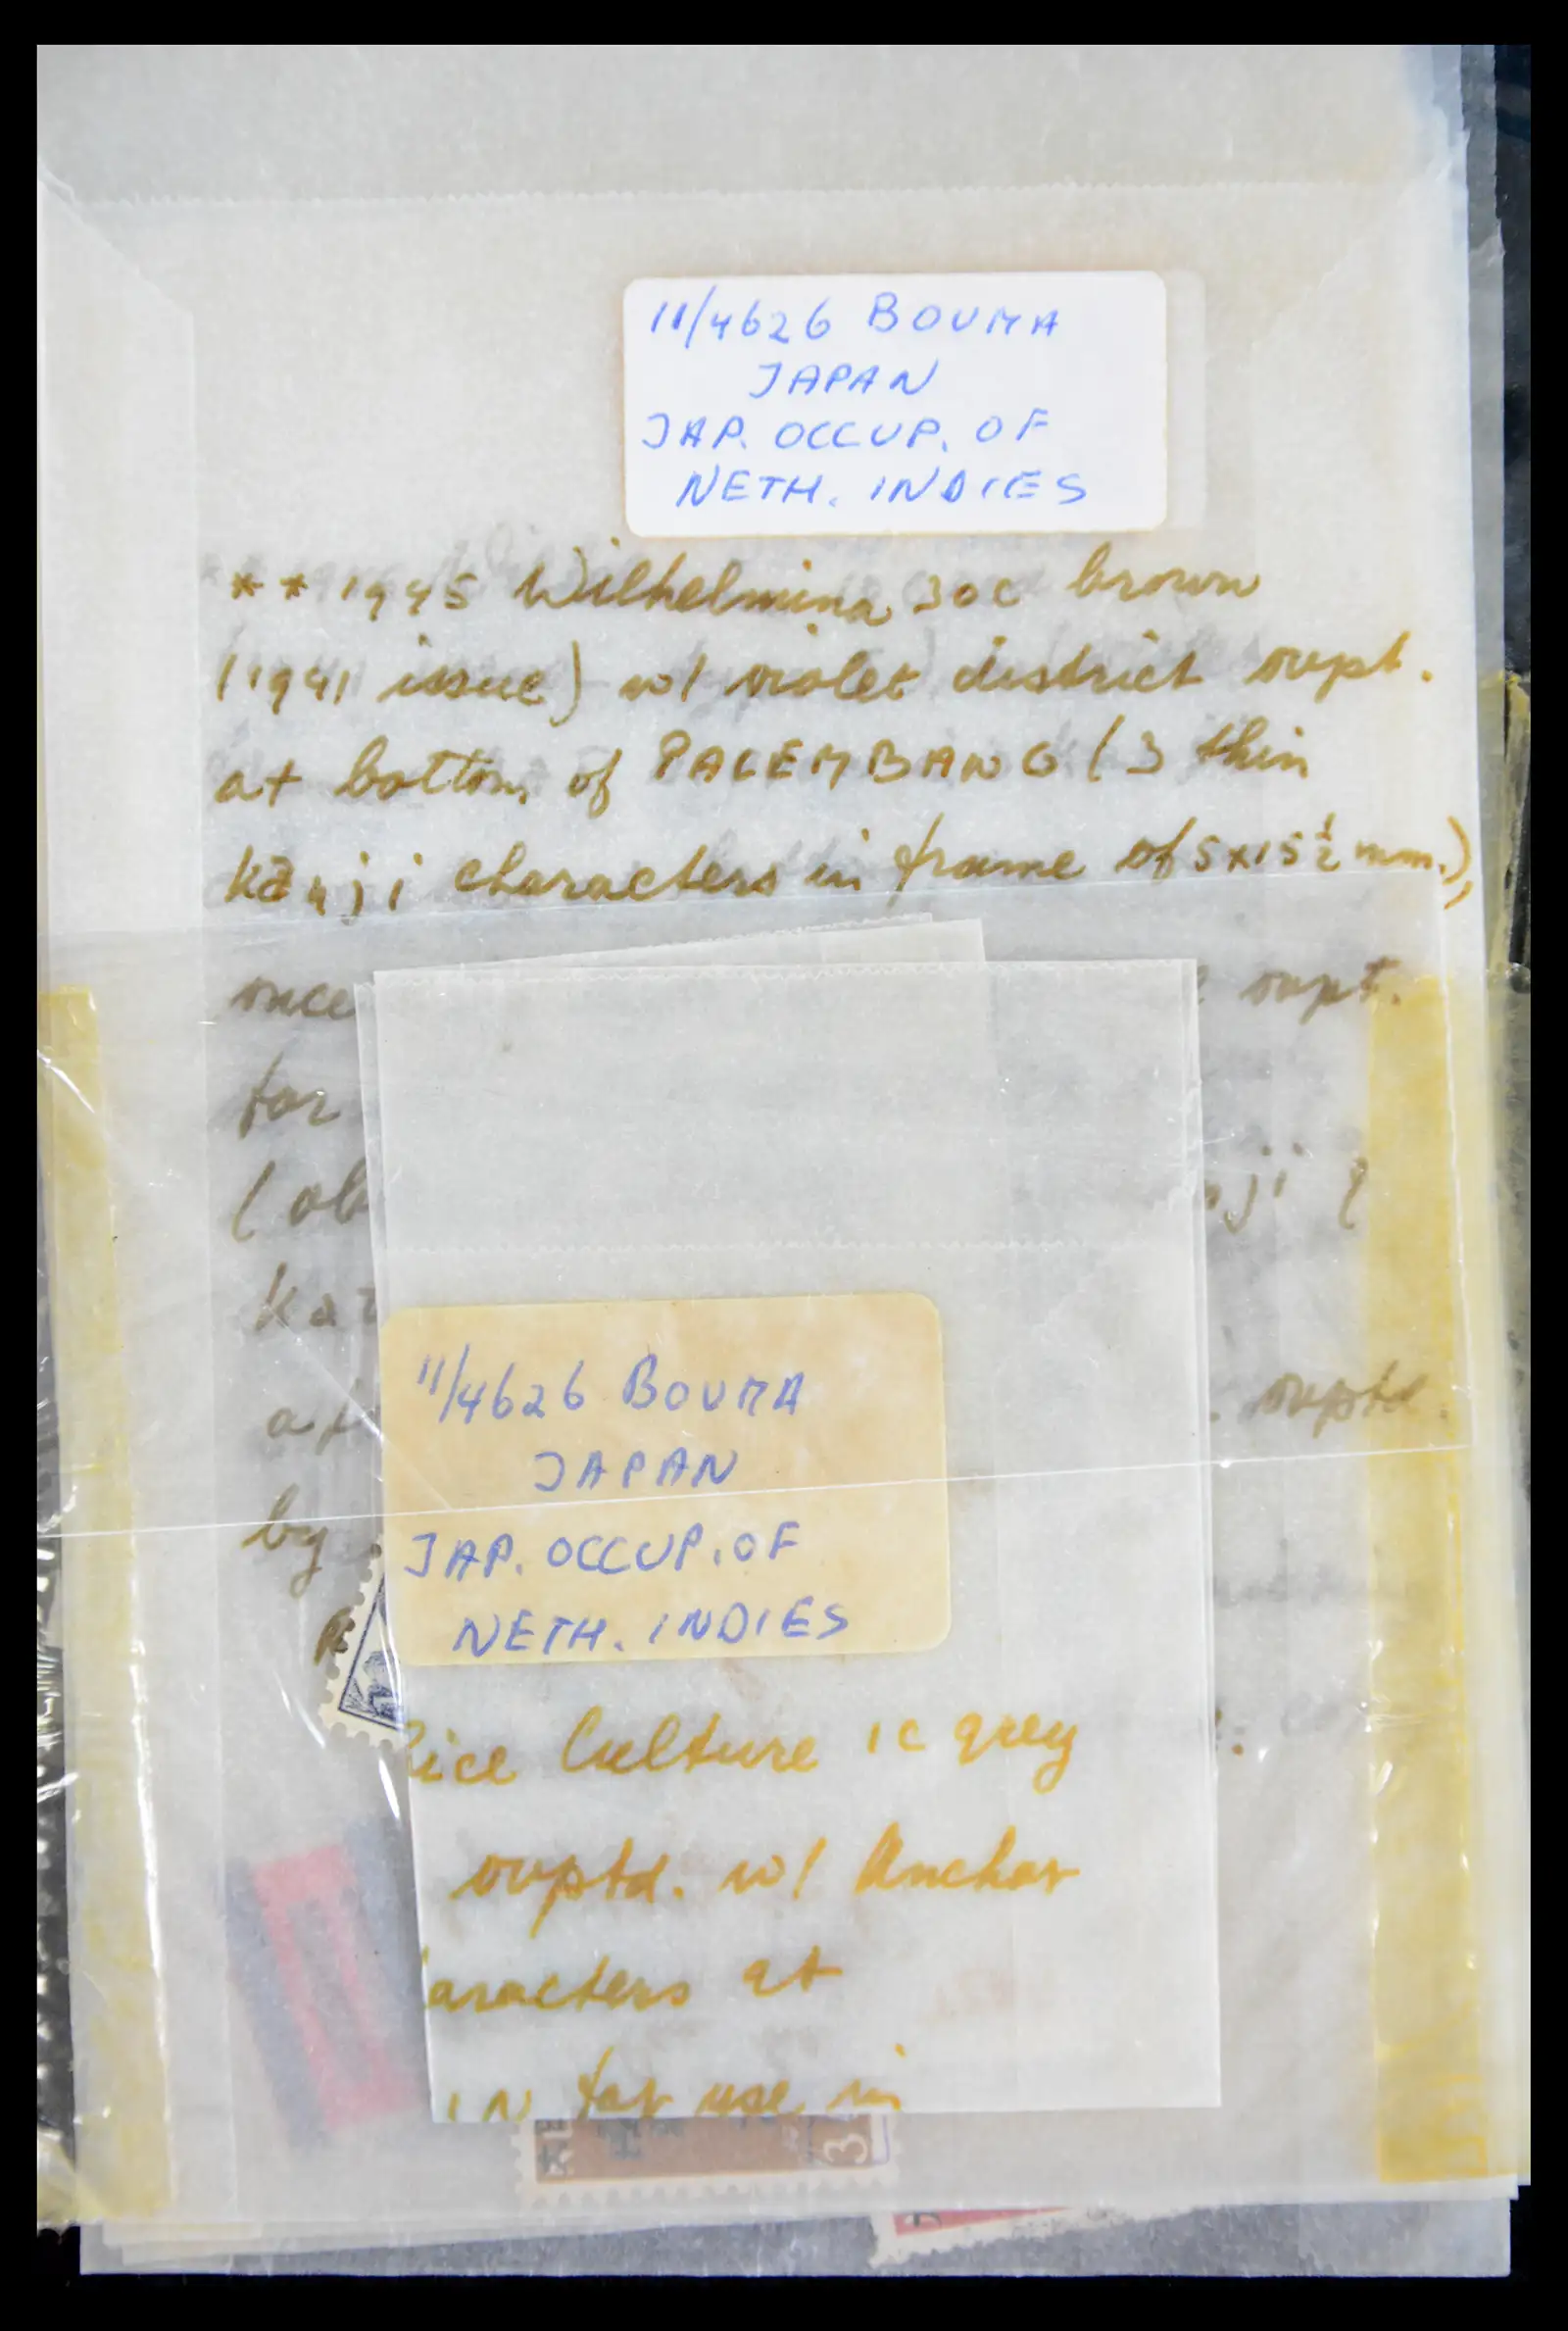 11/4626 BOUMA
JAPAN
JAP. OCCUP. OF
NETH. INDIES
** 1945 Wilhelmina 30c brown
(1941 issue) w/ violet district ovpt.
at bottom of PALEMBANG (3 thin
kanji characters in frame of 5x15½ mm.),
once ovpt.
for
by ovptd.
11/4626 BOUMA
JAPAN
JAP. OCCUP. OF
NETH. INDIES
Rice Culture 1c grey
ovptd. w/ Anchor
aracters at
IN for use in